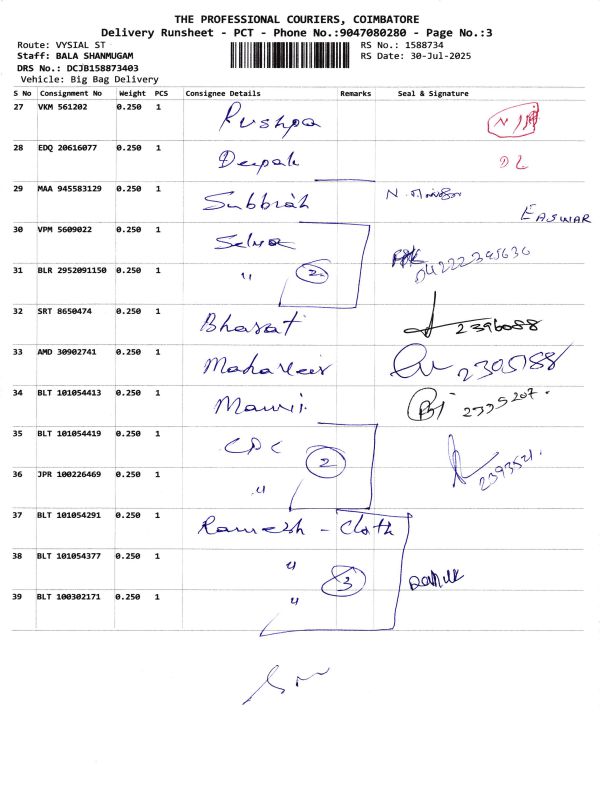 THE PROFESSIONAL COURIERS, COIMBATORE
Delivery Runsheet - PCT - Phone No.:9047080280 - Page No.:3
Route: VYSIAL ST RS No.: 1588734
Staff: BALA SHANMUGAM RS Date: 30-Jul-2025
DRS No.: DCJB158873403
Vehicle: Big Bag Delivery
S No Consignment No Weight PCS Consignee Details Remarks Seal & Signature
27 VKM 561202 0.250 1 Pushpa
28 EDQ 20616077 0.250 1 Deepak DL
29 MAA 945583129 0.250 1 Subbiah N.
EASWAR
30 VPM 5609022 0.250 1 Selva
31 BLR 2952091150 0.250 1 " 2 04222395636
32 SRT 8650474 0.250 1 Bharat 2396088
33 AMD 30902741 0.250 1 Mahaveer 2395188
34 BLT 101054413 0.250 1 2335207.
35 BLT 101054419 0.250 1 CPC 2 2393521.
36 JPR 100226469 0.250 1 "
37 BLT 101054291 0.250 1 Ramesh - Cloth
38 BLT 101054377 0.250 1 " 3
39 BLT 100302171 0.250 1 "